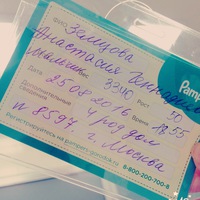 ФИО Земцова
Анастасия Геннадьевна
Мальчик
Pampers
Вес 3340 Рост 50
Дата 25.08.2016 Время 18.55
Дополнительные
сведения 4 род дом
N 8597. г. Москва
Регистрируйтесь на pampers-gorodok.ru 8-800-200-700-8